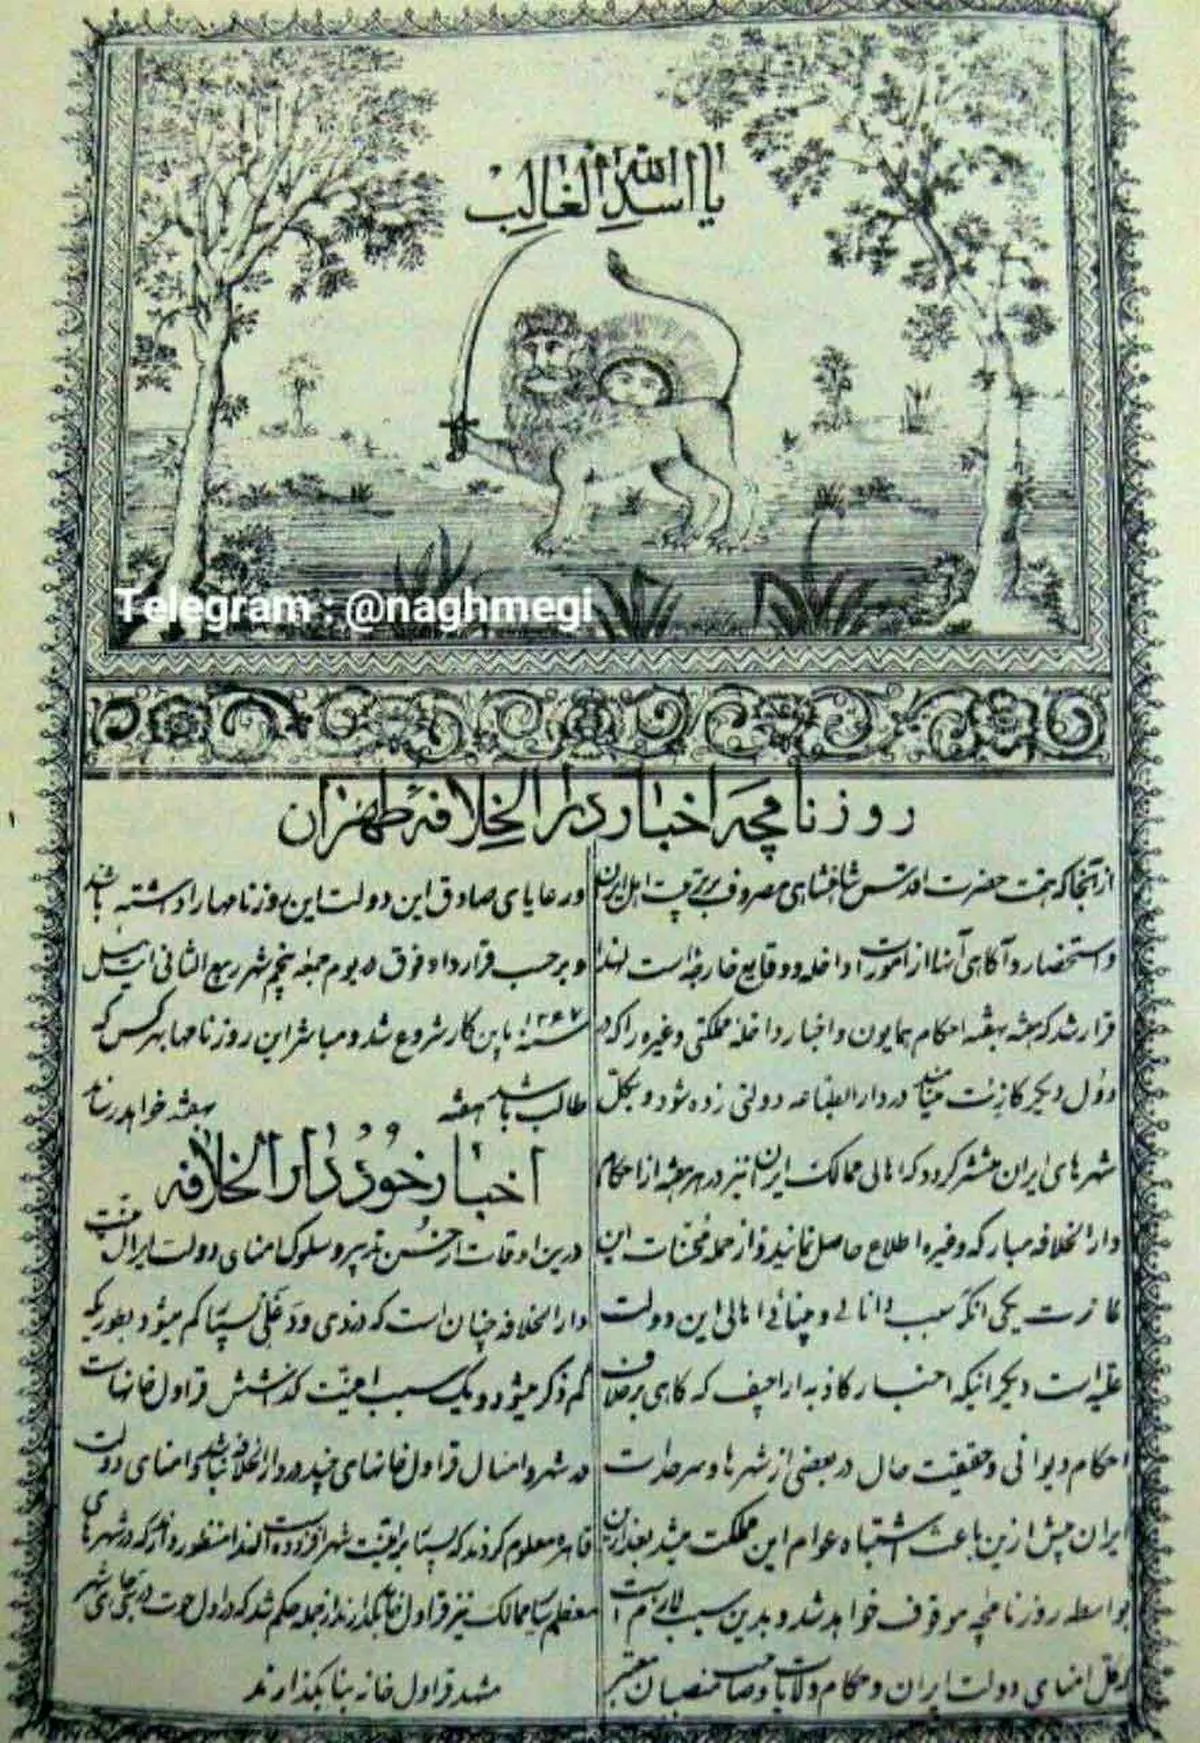 یا اسد الله الغالب
Telegram : @naghmegi
روزنامچه اخبار دار الخلافه طهران
از آنجا که همت حضرت اقدس شاهنشاهی مصروف بر تربیت اهل ایران
و استحضار و آگاهی آنها از امورات داخله و وقایع خارجه است لهذا
قرار شد که هفته بهفته احکام همایون و اخبار داخله مملکتی و غیره را که در
دول دیگر کازت مینامند در دار الطباعه دولتی زده شود و بکل
شهرهای ایران منتشر کردد که اهالی ممالک ایران نیز در هر هفته از احکام
دار الخلافه مبارکه و غیره اطلاع حاصل نمایند و از جمله محسنات این
کازت یکی آنکه سبب دانائی و بینائی اهالی این دولت
علیه است دیکر اینکه اخبار کاذبه اراجیف که کاهی برخلاف
احکام دیوانی و حقیقت حال در بعضی از شهرها و سرحدات
ایران پیش ازین باعث اشتباه عوام این مملکت میشد بعد ازین
بواسطه روزنامچه موقوف خواهد شد و بدین سبب لازم است
که کل امنای دولت ایران و حکام ولایات و صاحب منصبان معتبر
و رعایای صادق این دولت این روزنامها را داشته باشند
و بر حسب قرارداد فوق در یوم جمعه پنجم شهر ربیع الثانی
سنه ۱۲۶۷ باین کار شروع شد و مباشر این روزنامها بهر کس که
طالب باشد هفته بهفته خواهد رساند
اخبار خود دار الخلافه
درین اوقات از حسن تدبیر و سلوک امنای دولت ایران امنیت
دار الخلافه چنان است که دزدی و دغلی بسیار کم میشود بطوریکه
کم ذکر میشود و یک سبب امنیت کذاشتن قراول خانهاست
در شهر و امسال قراول خانهای چند در دار الخلافه بنا شد و امنای دولت
قاهره معلوم کردند که بسیار بر امنیت شهر افزوده است لهذا منظور دارند که در شهرهای
معظم سایر ممالک نیز قراول خانه بکذارند از جمله حکم شد که در اول حوت در شهر
مشهد قراول خانه بنا بکذارند